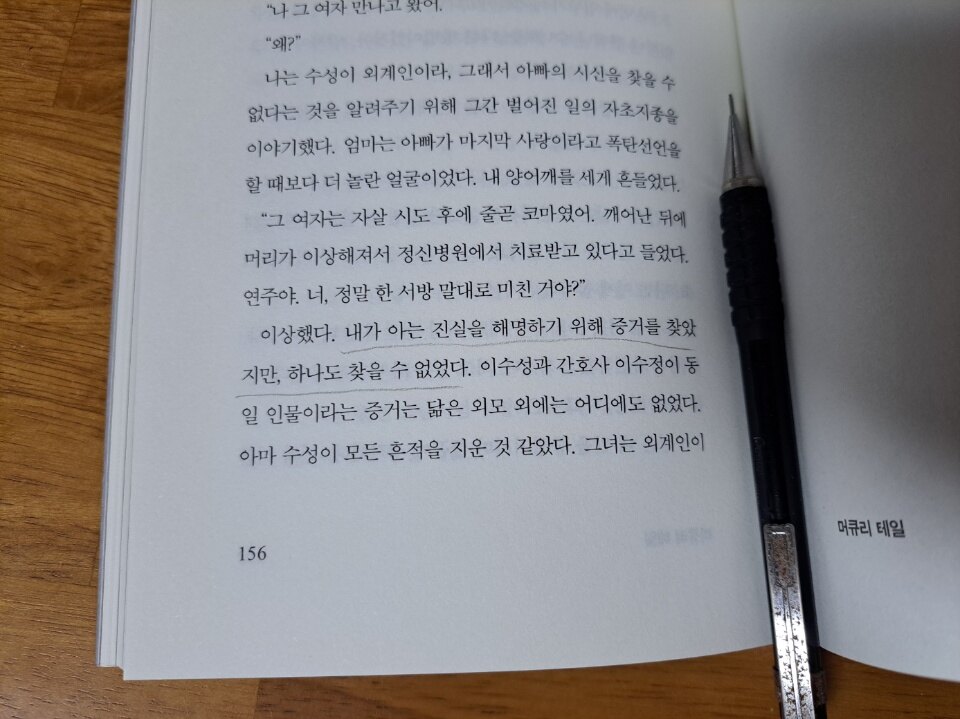 “나 그 여자 만나고 왔어.
“왜?”
나는 수성이 외계인이라, 그래서 아빠의 시신을 찾을 수
없다는 것을 알려주기 위해 그간 벌어진 일의 자초지종을
이야기했다. 엄마는 아빠가 마지막 사랑이라고 폭탄선언을
할 때보다 더 놀란 얼굴이었다. 내 양어깨를 세게 흔들었다.
“그 여자는 자살 시도 후에 줄곧 코마였어. 깨어난 뒤에
머리가 이상해져서 정신병원에서 치료받고 있다고 들었다.
연주야. 너, 정말 한 서방 말대로 미친 거야?”
이상했다. 내가 아는 진실을 해명하기 위해 증거를 찾았
지만, 하나도 찾을 수 없었다. 이수성과 간호사 이수정이 동
일 인물이라는 증거는 닮은 외모 외에는 어디에도 없었다.
아마 수성이 모든 흔적을 지운 것 같았다. 그녀는 외계인이
156
머큐리 테일